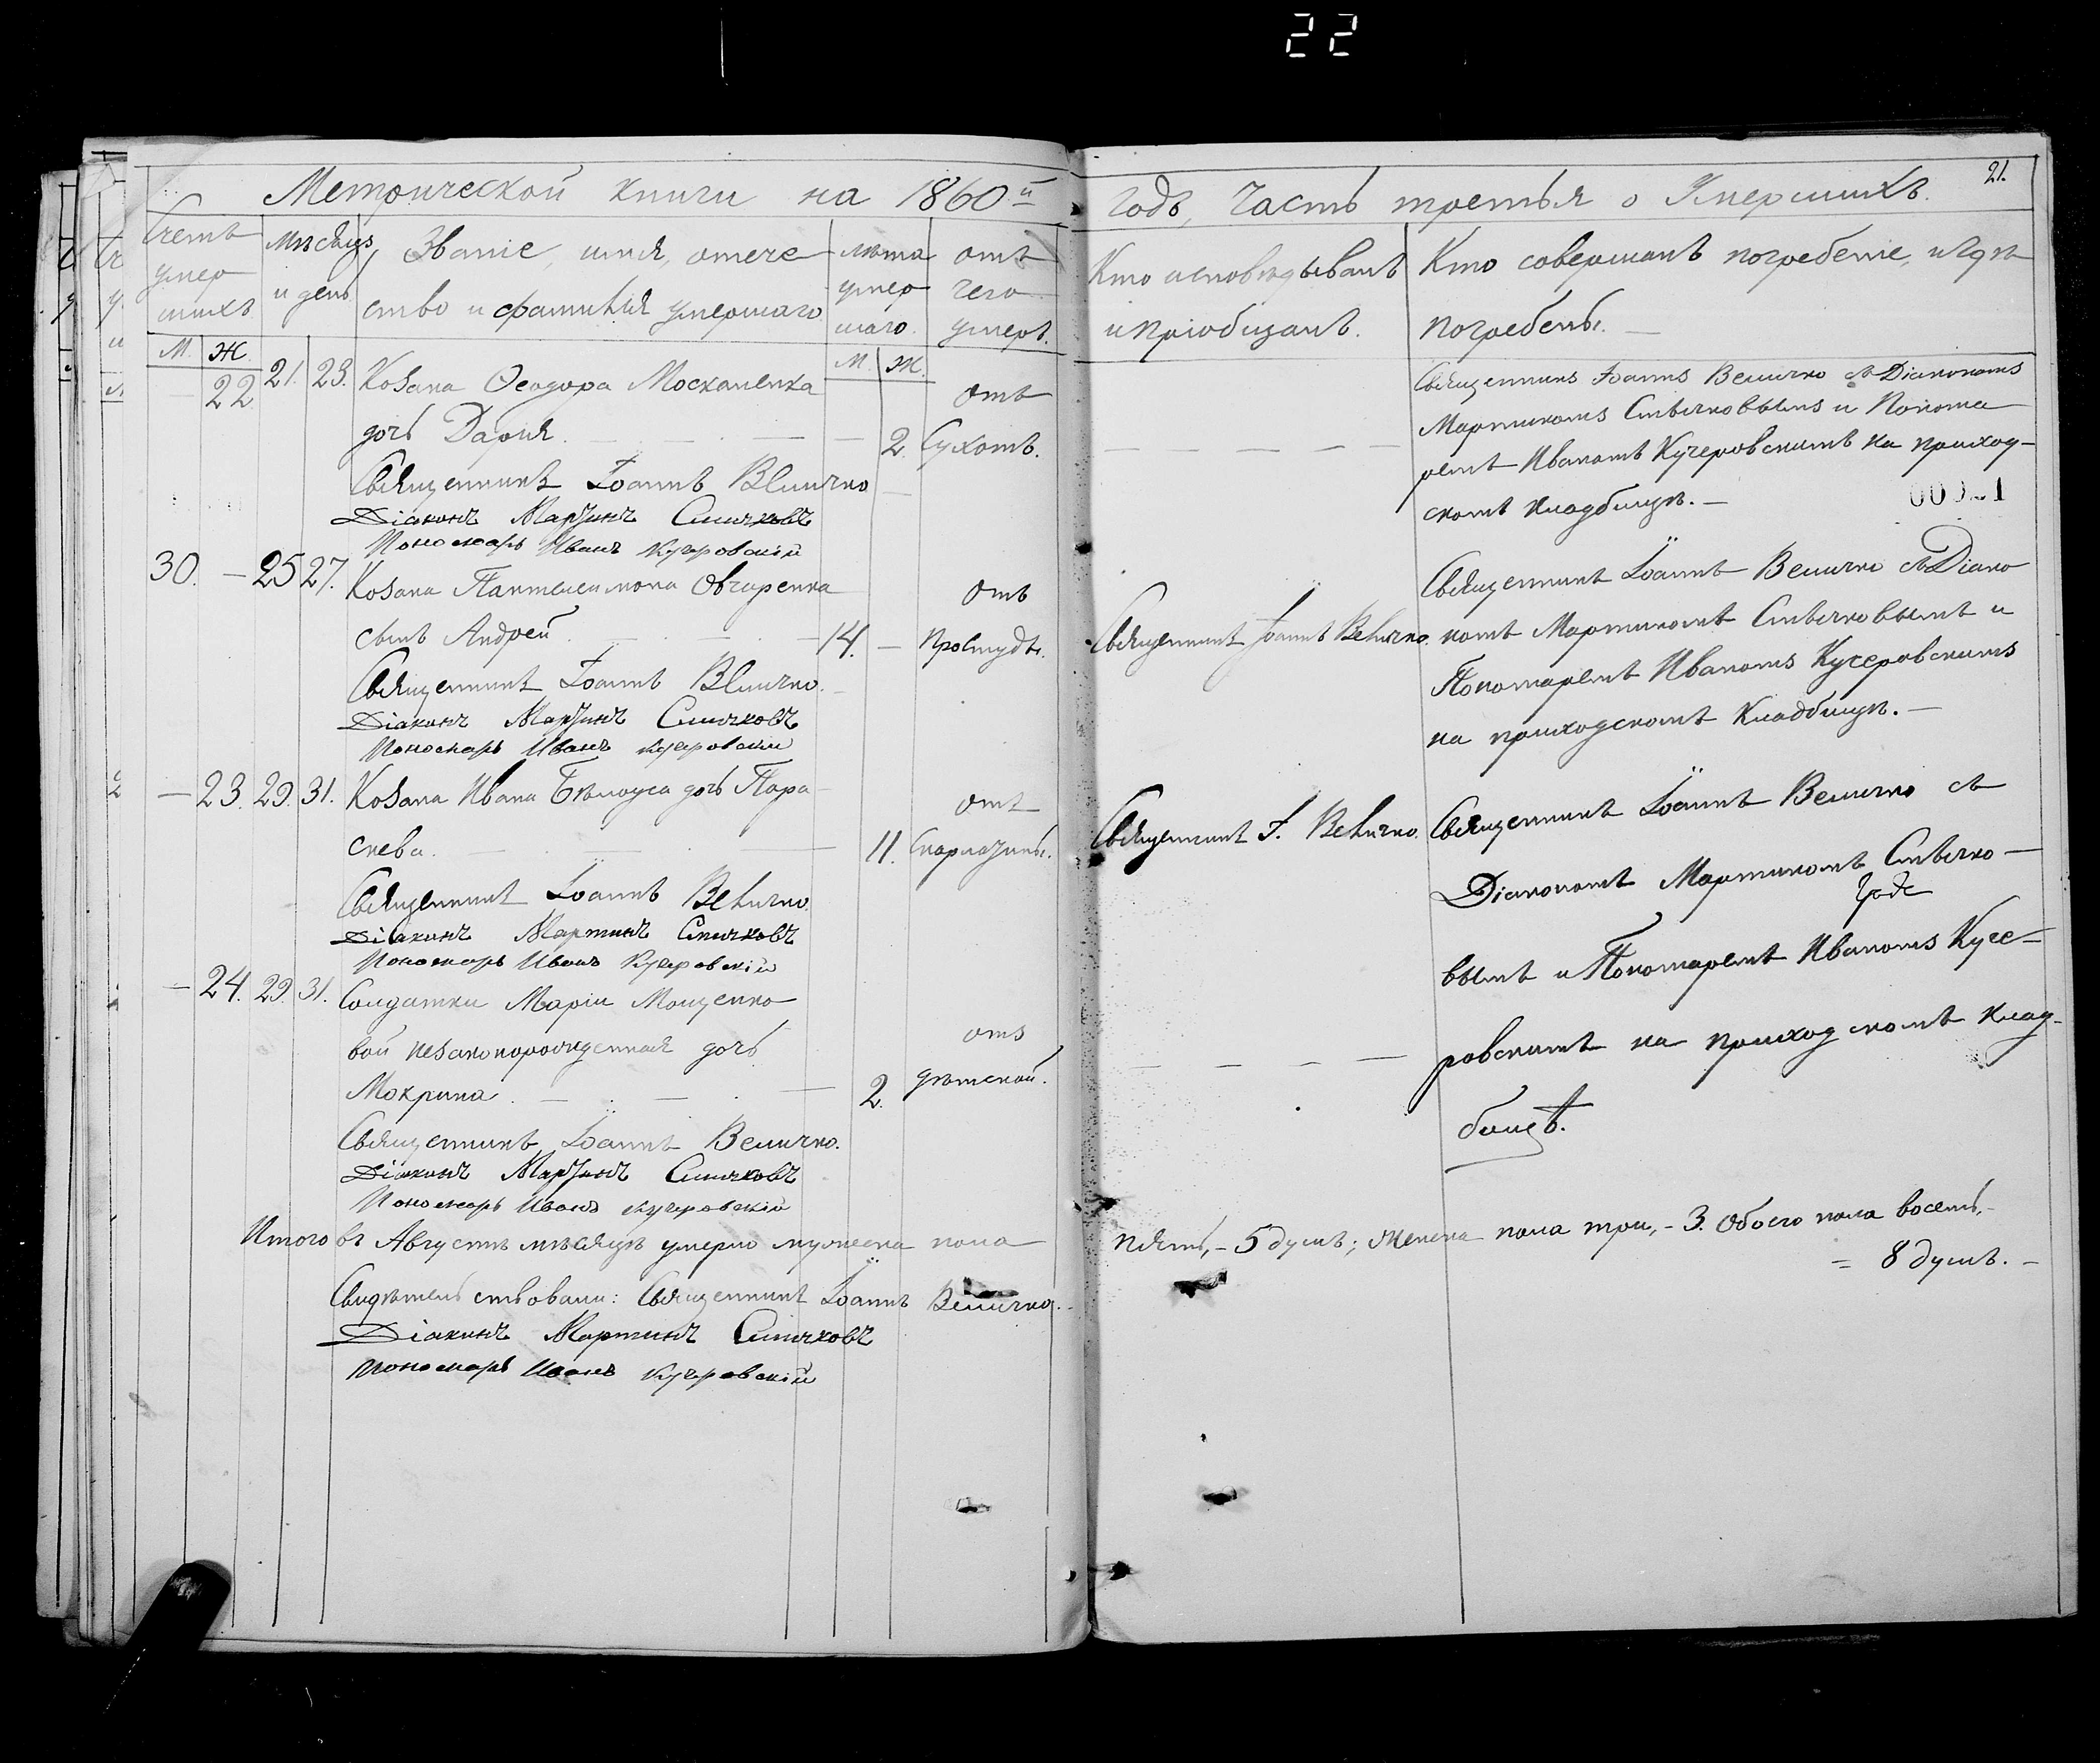 22
Метрической книги на 1860й
годъ, Часть третья о Умершихъ.
21.
Счетъ умершихъ
Мѣсяцъ и день
Званіе, имя, отечество и фамилія умершаго
Лѣта умершаго.
отъ чего умеръ.
Кто исповѣдывалъ и пріобщалъ.
Кто совершалъ погребеніе, и гдѣ погребены. —
М. Ж.
М. Ж.
22 21. 23. Козака Ѳеодора Москаленка отъ
дочь Дарія. — — 2. Сухотъ.
Священникъ Іоаннъ Величко
Діаконъ Мартинъ Спичковъ
Пономарь Иванъ Кучеровскій
Священникъ Іоаннъ Величко съ Діакономъ
Мартиномъ Спѣчковымъ и Понома
ремъ Иваномъ Кучеровскимъ на приход-
скомъ кладбищѣ. —
30. — 25 27. Козака Пантелеимона Овчаренка отъ
сынъ Андрей. — 14. — Простуды.
Священникъ Іоаннъ Величко.
Діаконъ Мартинъ Спичковъ
Пономарь Иванъ Кучеровскій
Священникъ Іоаннъ Величко.
Священникъ Іоаннъ Величко съ Діако
номъ Мартиномъ Спѣчковымъ и
Пономаремъ Иваномъ Кучеровскимъ
на приходскомъ Кладбищѣ. —
— 23. 29. 31. Козака Ивана Бѣлоуса дочь Пара отъ
скева. — 11. Скарлатины.
Священникъ Іоаннъ Величко.
Діаконъ Мартинъ Спичковъ
Пономарь Иванъ Кучеровскій
Священникъ І. Величко.
Священникъ Іоаннъ Величко съ
Діакономъ Мартиномъ Спѣчко —
вымъ и Пономаремъ Иваномъ Куче-
ровскимъ на приходскомъ клад-
бищѣ.
— 24. 29. 31. Солдатки Маріи Мощенко
вой незаконорожденная дочь отъ
Мокрина. — 2. дѣтской.
Священникъ Іоаннъ Величко.
Діаконъ Мартинъ Спичковъ
Пономарь Иванъ Кучеровскій
Итого въ Августѣ мѣсяцѣ умерло мужеска пола
пять, - 5 душъ; женска пола три, - 3. Обоего пола восемь, -
= 8 душъ. —
Свидѣтельствовали: Священникъ Іоаннъ Величко. —
Діаконъ Мартинъ Спичковъ
Пономарь Иванъ Кучеровскій